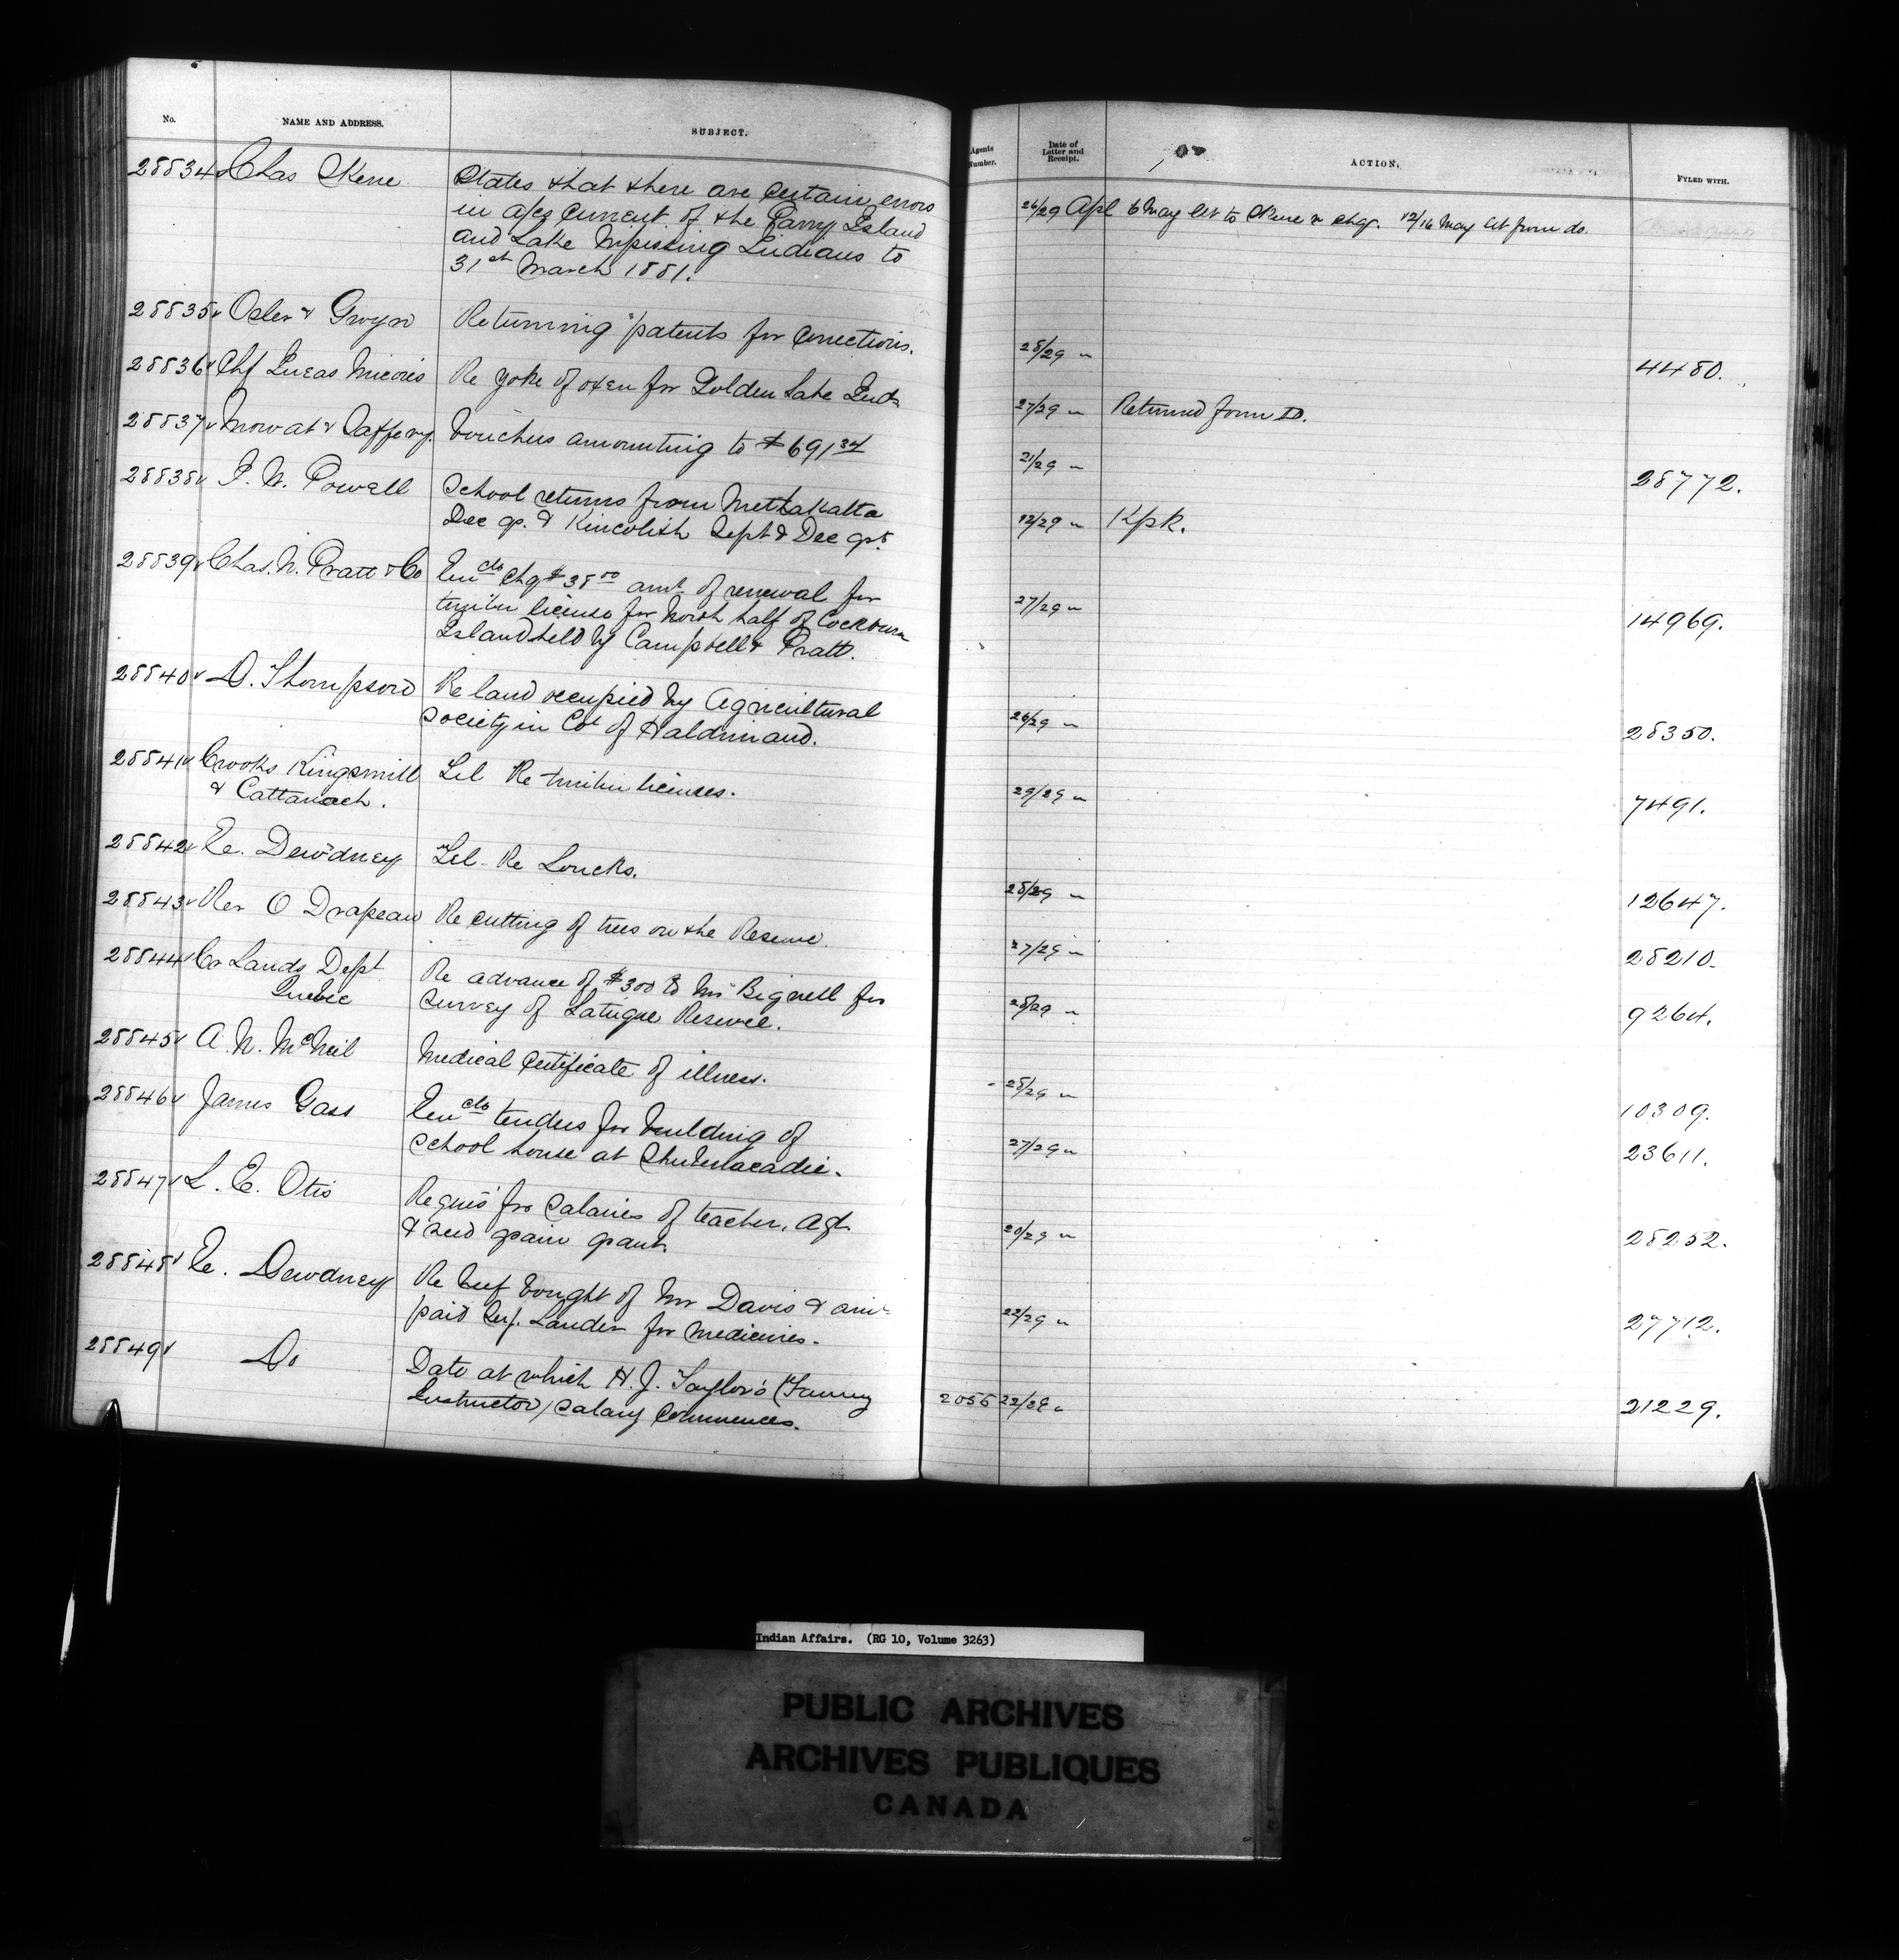 No. NAME AND ADDRESS. SUBJECT.
28834 Chas Skene States that there are certain errors
in a/cs current of the Parry Island
and Lake Nipissing Indians to
31st March 1881.
28835 Osler & Gwyn Returning patents for corrections.
28836 Chf Lucas Re yoke of oxen for Golden Lake Inds
28837 Mowat & Vouchers amounting to $691 34
28838 I. W. Powell School returns from Methakatla
Dec qr. & Kincolith Sept & Dec qrs
28839 Chas. N. Pratt & Co Encls chq $38 00 amt of renewal for
timber license for North half of Cockburn
Island held by Campbell & Pratt.
28840 D. Thompson Re land occupied by Agricultural
Society in Co of Haldimand.
28841 Crooks Kingsmill Tel Re timber licenses.
& Cattanach.
28842 E. Dewdney Tel. Re Loucks.
28843 Rev O Drapeau Re cutting of trees on the Reserve.
28844 Cr Lands Dept Re advance of $300 to Mr Bignell for
Quebec survey of Latuque Reserve.
28845 A. N. McNeil Medical Certificate of illness.
28846 James Gass Encls tenders for building of
school house at Shubenacadie.
28847 L. E. Otis Requis for Salaries of teacher, Agt
& seed grain grant.
28848 E. Dewdney Re beef bought of Mr Davis & amt
paid Serj. Lauder for medicines.
28849 Do Date at which H. J. Taylor's (Farming
Instructor) salary commences.
Agents Number. Date of Letter and Receipt. ACTION. FYLED WITH.
26/29 Apl 6 May let to Skene w chq. 12/16 May let from do.
28/29 " 4480.
27/29 " Returned from D.
21/29 " 28772.
12/29 " Kpk.
27/29 " 14969.
26/29 " 28350.
29/29 " 7491.
28/29 " 12647.
27/29 " 28210.
28/29 " 9264.
28/29 " 10309.
27/29 " 23611.
20/29 " 28252.
22/29 " 27712.
2055 22/29 " 21229.
Indian Affairs. (RG 10, Volume 3263)
PUBLIC ARCHIVES
ARCHIVES PUBLIQUES
CANADA